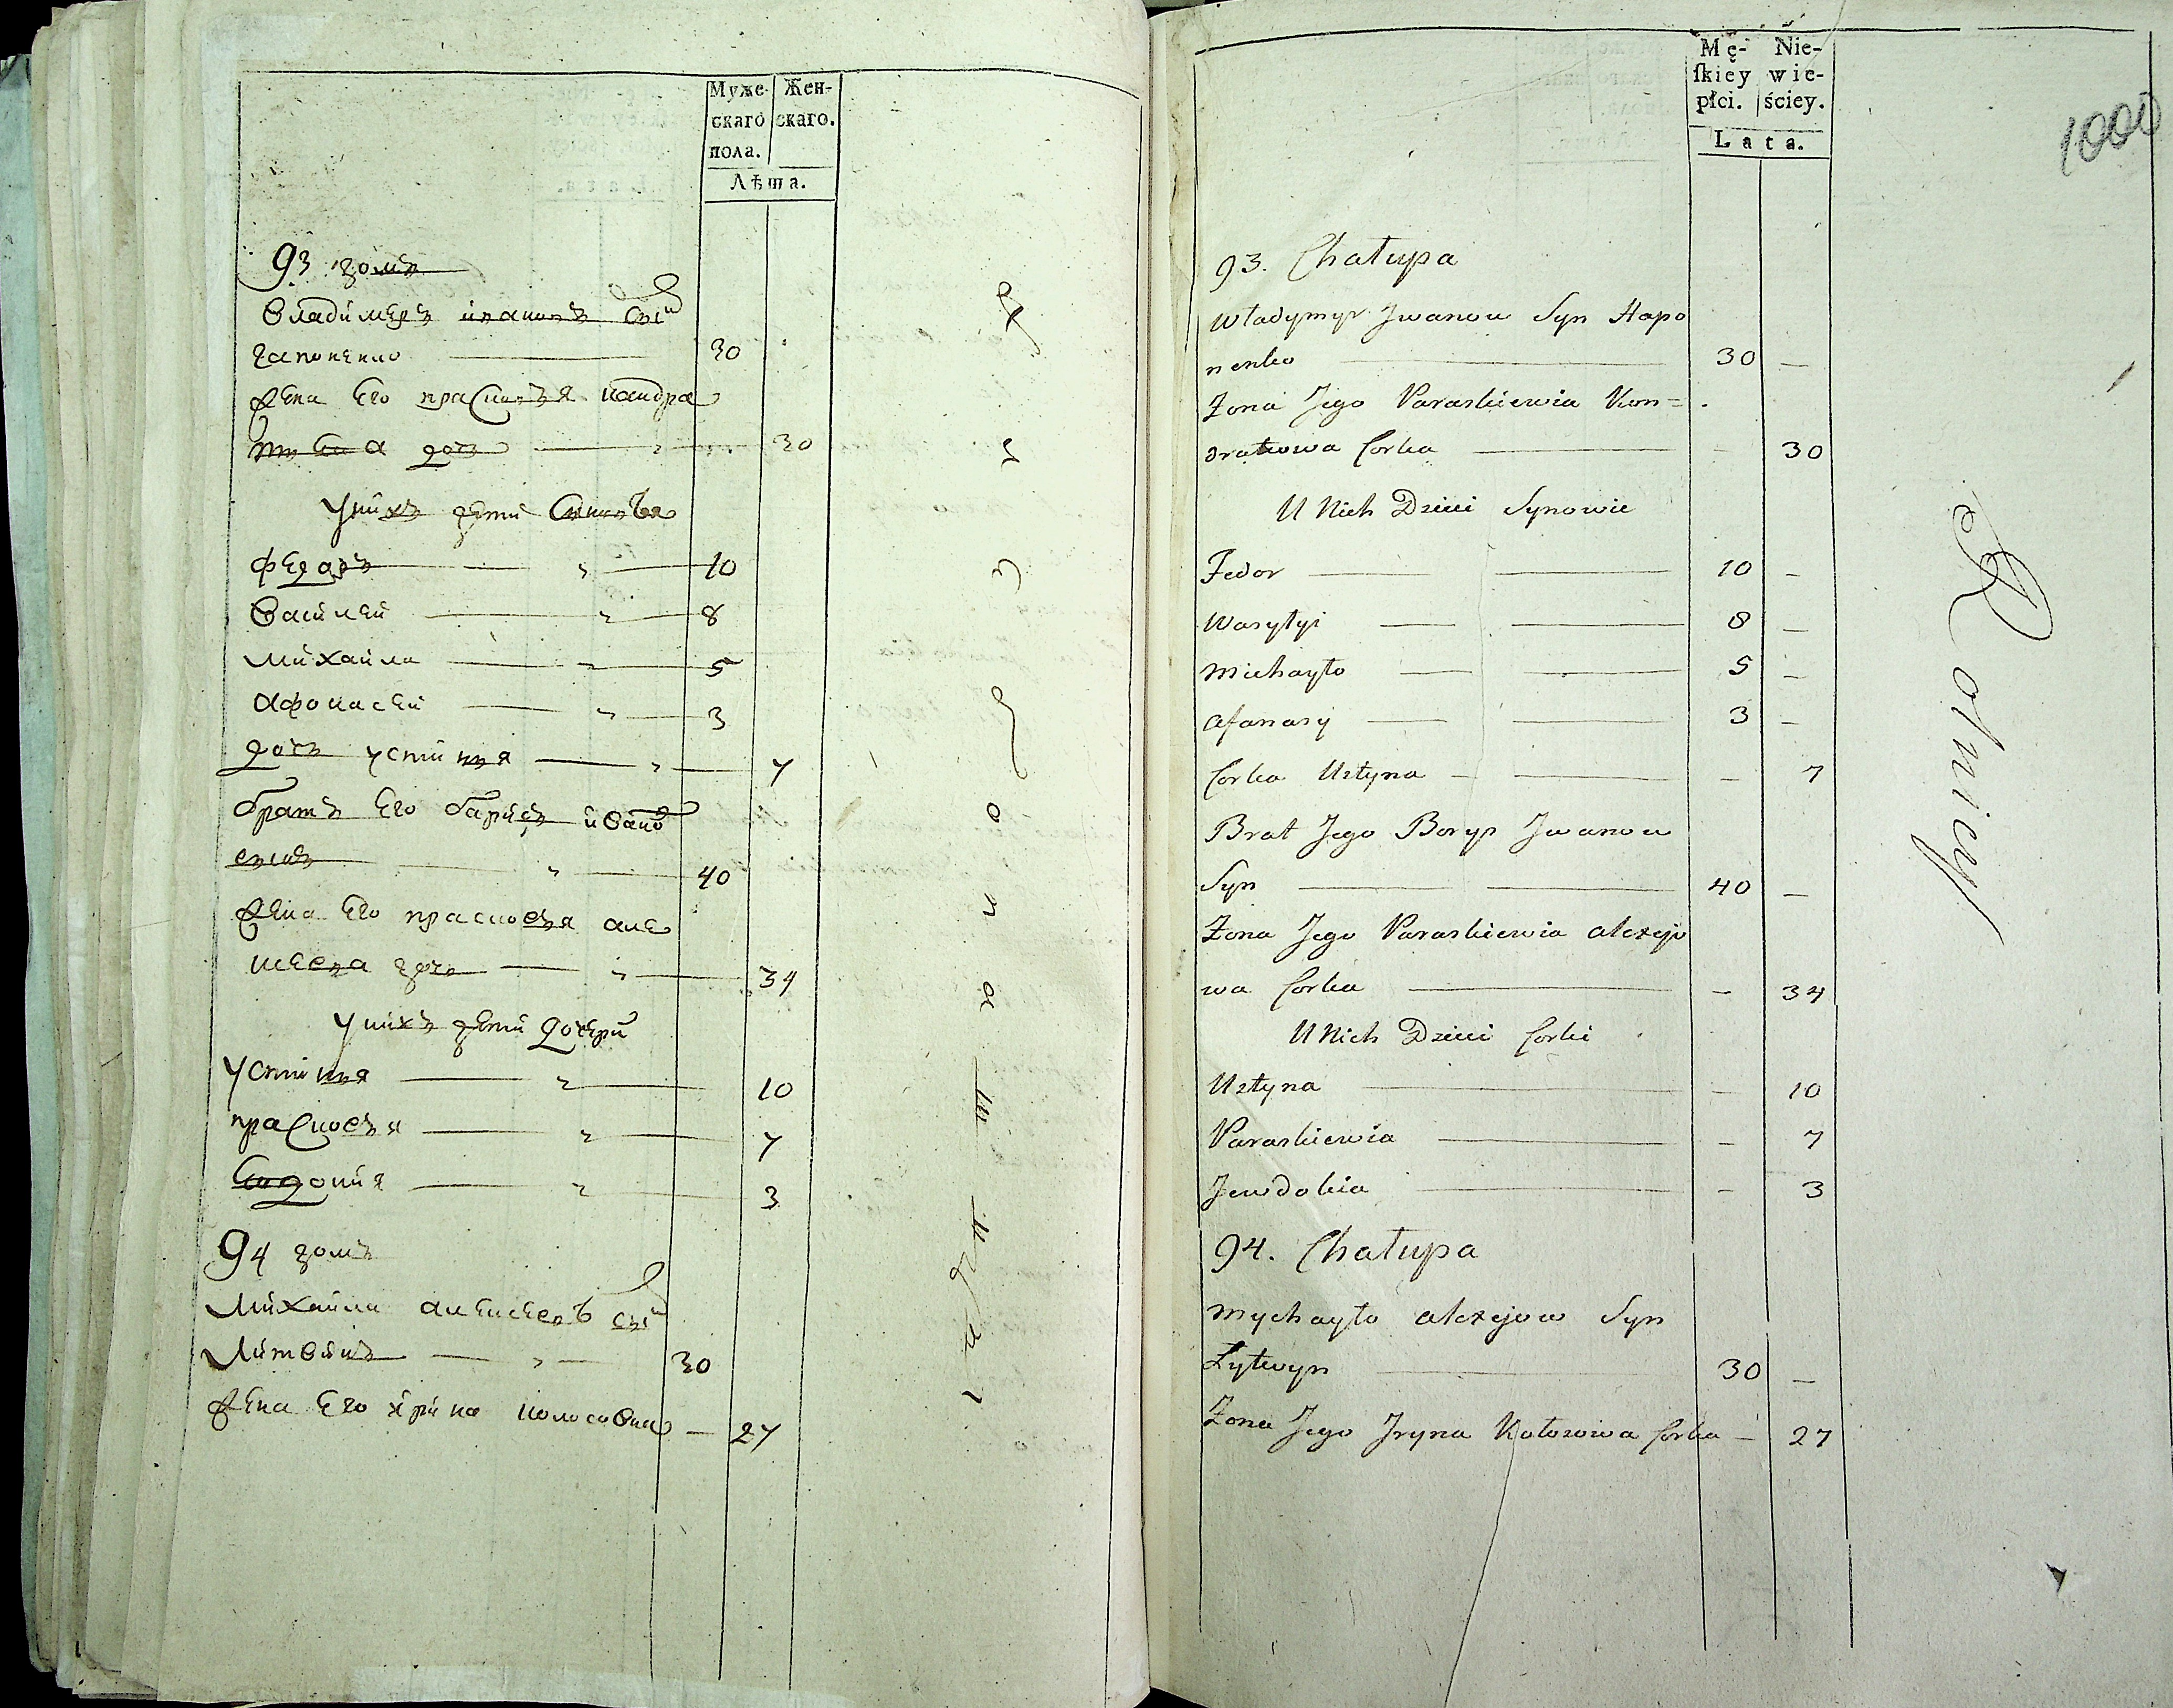 Муже-
скаго
пола.
Жен-
скаго.
Лѣта.
93 домъ
Владимеръ ивановъ сынъ
гапоненко 30
жена Его прасковъя кандра
тъева дочь 30
У нихъ дети Сыновъя
Федоръ 10
Василей 8
Михайла 5
Афонасей 3
дочь устинъя 7
братъ Его барисъ ивано
въ 40
жена Его прасковъя але
ксеева дочь 34
У нихъ дети дочери
Устинъя 10
прасковъя 7
Евдокия 3
94 домъ
Михайла алексеевъ сынъ
Литвинъ 30
жена Его ирина колосова 27
Mę-
ſkiey
płci.
Nie-
wie-
ściey.
Lata.
1000
93. Chałupa
Władymyr Jwanow Syn Hapo
nenko 30 —
Żona Jego Paraskiewia Kon=
dratowa Corka — 30
U Nich Dzieci Synowie
Fedor 10 —
Wasyłyi 8 —
Michayło 5 —
Afanasy 3 —
Corka Ustyna — 7
Brat Jego Borys Jwanow
Syn 40 —
Żona Jego Paraskiewia Alexejo
wa Corka — 34
U Nich Dzieci Corki
Ustyna — 10
Paraskiewia — 7
Jewdokia — 3
94. Chałupa
Mychayło Alexejow Syn
Łytwyn 30 —
Żona Jego Jryna Kołosowa Corka — 27
Rolnicy